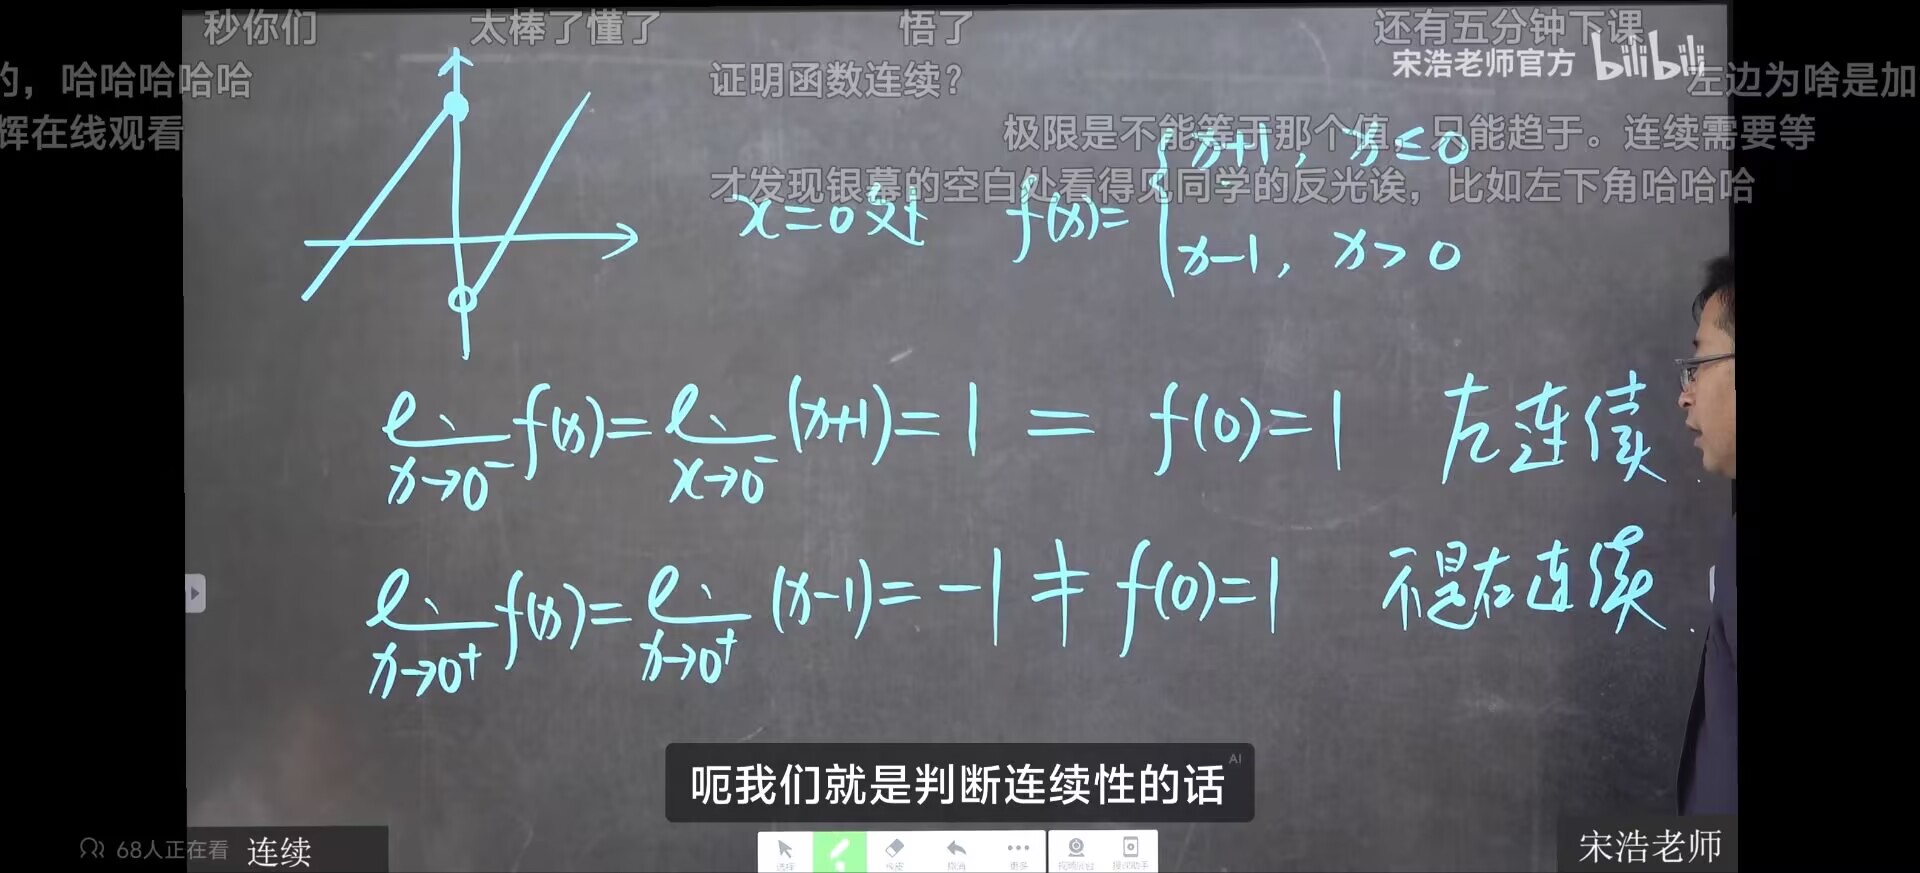 秒你们 太棒了懂了 悟了 还有五分钟下课
宋浩老师官方 bilibili
的，哈哈哈哈哈 证明函数连续？ 左边为啥是加
辉在线观看 极限是不能等于那个值，只能趋于。连续需要等
才发现银幕的空白处看得见同学的反光诶，比如左下角哈哈哈
x=0处 f(x)={x+1, x≤0
x-1, x>0
lim x→0⁻ f(x)=lim x→0⁻ (x+1)=1 = f(0)=1 左连续.
lim x→0⁺ f(x)=lim x→0⁺ (x-1)=-1≠f(0)=1 不是右连续.
呃我们就是判断连续性的话 AI
68人正在看 连续 宋浩老师
选择 撤消 更多